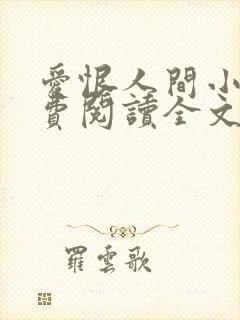 愛恨人間小
費閱讀全文
羅雲歌